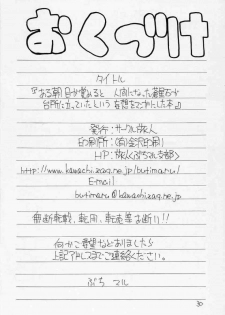 おくづけ
タイトル
『ある朝目が覚めると人間になった蓮石が
台所に立っていたという妄想をマンガにした本。』
発行：サークル旅人
印刷所：(有)金沢印刷
HP：旅人ぷちまる部
http://www.kawachi.zaq.ne.jp/butimaru/
E-mail
butimaru@kawachi.zaq.ne.jp
無断転載、転用、転売等は断り!!
何かご要望などありましたら
上記アドレスまでご連絡ください。
ぷち マル
30